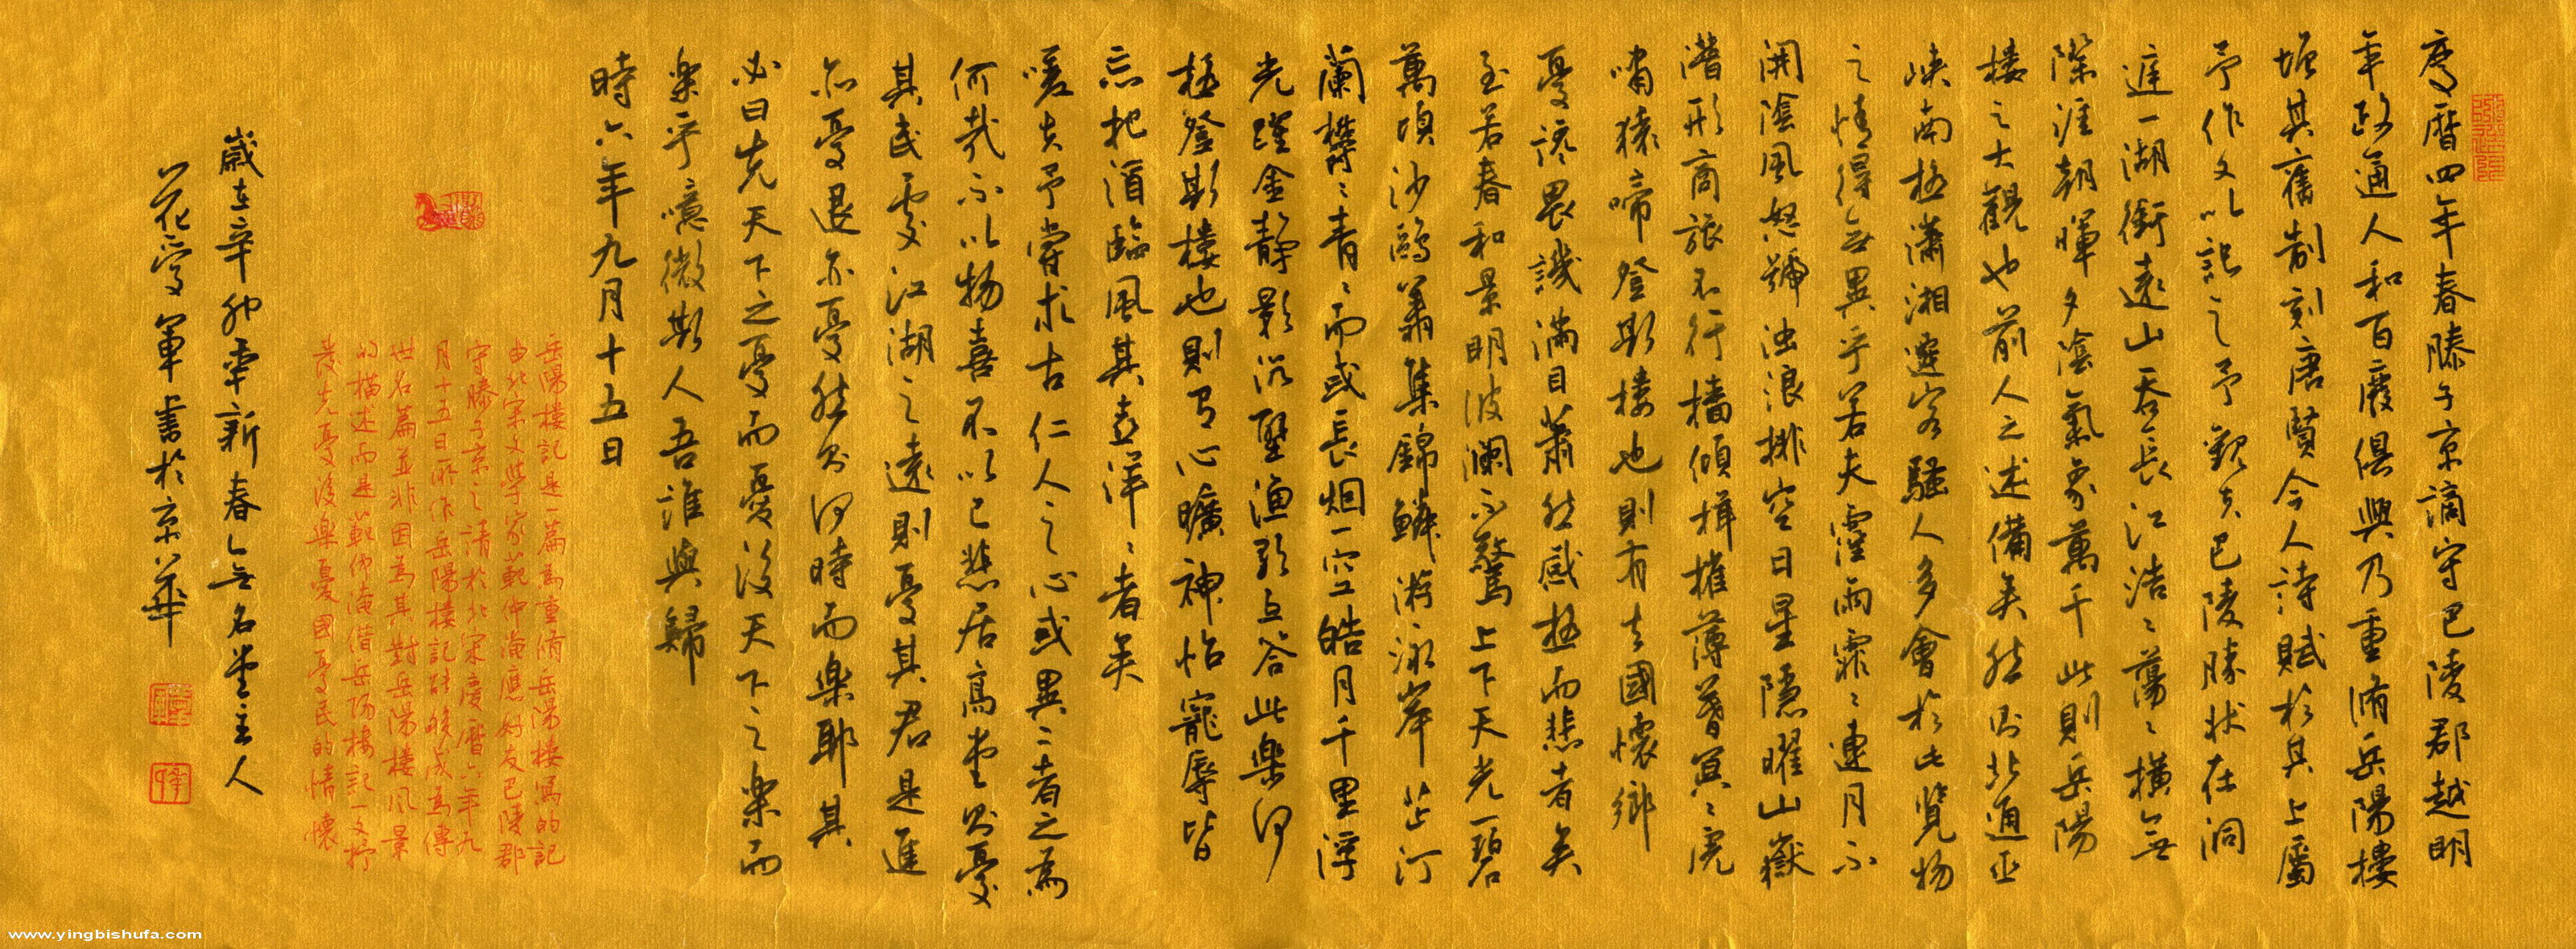 慶曆四年春滕子京謫守巴陵郡越明
年政通人和百廢俱興乃重脩岳陽樓
增其舊制刻唐賢今人詩賦於其上屬
予作文以記之予觀夫巴陵勝狀在洞
庭一湖銜遠山吞長江浩浩蕩蕩橫無
際涯朝暉夕陰氣象萬千此則岳陽
樓之大觀也前人之述備矣然則北通巫
峽南極瀟湘遷客騷人多會於此覽物
之情得無異乎若夫霪雨霏霏連月不
開陰風怒號濁浪排空日星隱曜山嶽
潛形商旅不行檣傾楫摧薄暮冥冥虎
嘯猿啼登斯樓也則有去國懷鄉
憂讒畏譏滿目蕭然感極而悲者矣
至若春和景明波瀾不驚上下天光一碧
萬頃沙鷗翔集錦鱗游泳岸芷汀
蘭鬱鬱青青而或長烟一空皓月千里浮
光躍金靜影沉璧漁歌互答此樂何
極登斯樓也則有心曠神怡寵辱皆
忘把酒臨風其喜洋洋者矣
嗟夫予嘗求古仁人之心或異二者之為
何哉不以物喜不以己悲居高堂則憂
其民處江湖之遠則憂其君是進
亦憂退亦憂然則何時而樂耶其
必曰先天下之憂而憂後天下之樂而
樂乎噫微斯人吾誰與歸
時六年九月十五日
岳陽樓記是一篇為重脩岳陽樓寫的記
由北宋文學家範仲淹應好友巴陵郡
守滕子京之請於北宋慶曆六年九
月十五日所作岳陽樓記能够成為傳
世名篇並非因為其對岳陽樓風景
的描述而是範仲淹借岳陽樓記一文抒
發先憂後樂憂國憂民的情懷
歲在辛卯年新春無名堂主人
花愛軍書於京華
www.yingbishufa.com